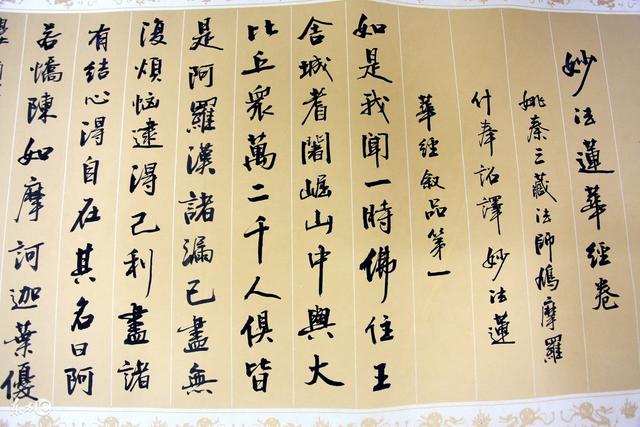 妙法蓮華經卷
姚秦三藏法師鳩摩羅
什奉詔譯 妙法蓮
華經叙品第一
如是我聞一時佛住王
舍城耆闍崛山中與大
比丘衆萬二千人俱皆
是阿羅漢諸漏已盡無
復煩惱逮得己利盡諸
有結心得自在其名曰阿
若憍陳如摩訶迦葉優